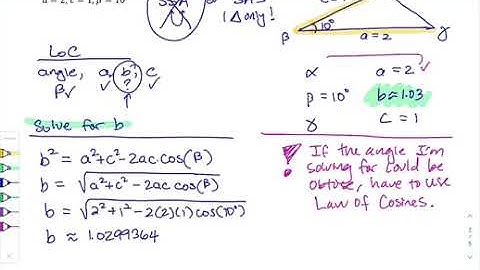 a = 2, c = 1, β = 10°
SSA
or SAS
1 Δ only!
β
10°
a = 2
γ
LoC
angle, a, b, c
β✓ ✓ ? ✓
α a = 2
β = 10° b ≈ 1.03
γ c = 1
Solve for b
b² = a² + c² - 2ac cos(β)
b = √a² + c² - 2ac cos(β)
b = √2² + 1² - 2(2)(1) cos(10°)
b ≈ 1.0299364
! If the angle I'm
solving for could be
obtuse, have to use
Law of Cosines.